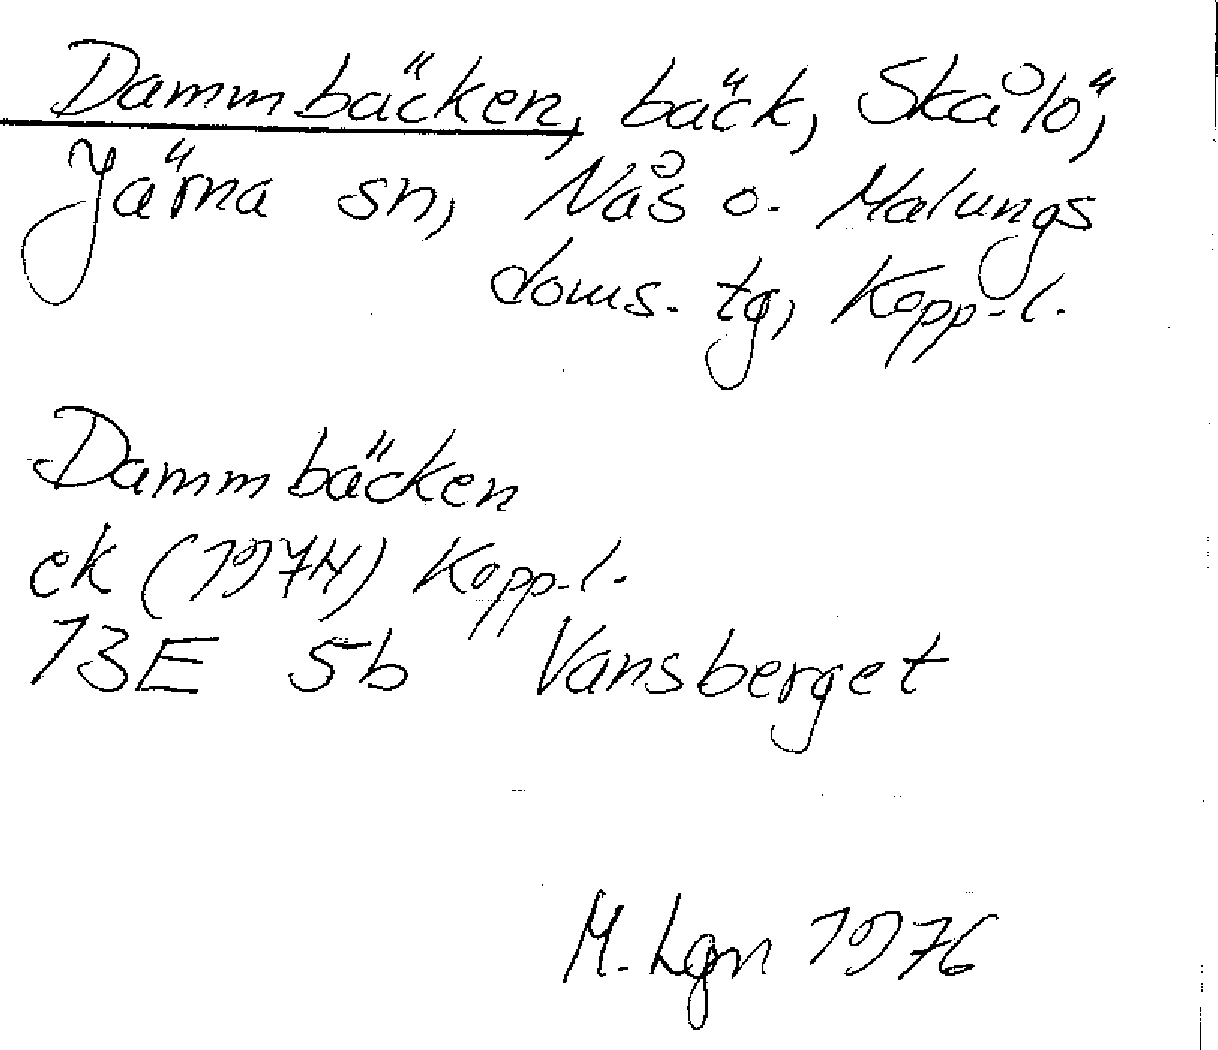 Dammbäcken, bäck, Skålö,
Järna sn, Nås o. Malungs
doms. tg, Kopp-l.
Dammbäcken
ek (1974) Kopp-l.
13E 5b Vansberget
M. Lgn 1976